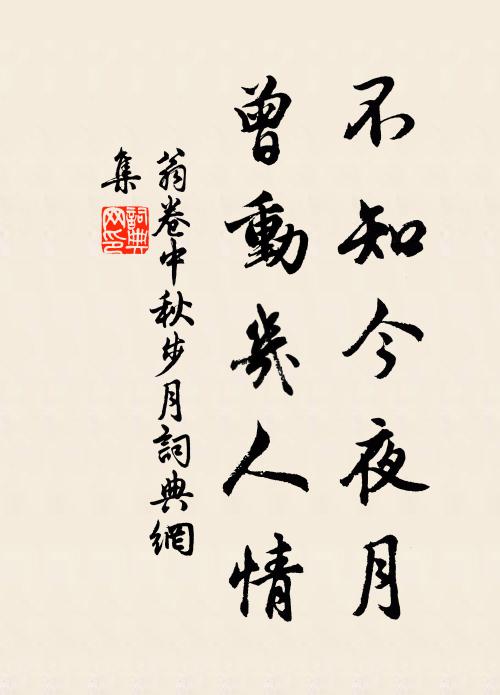 不知今夜月
曾動幾人情
翁卷中秋步月詞典網
集
詞典
网印